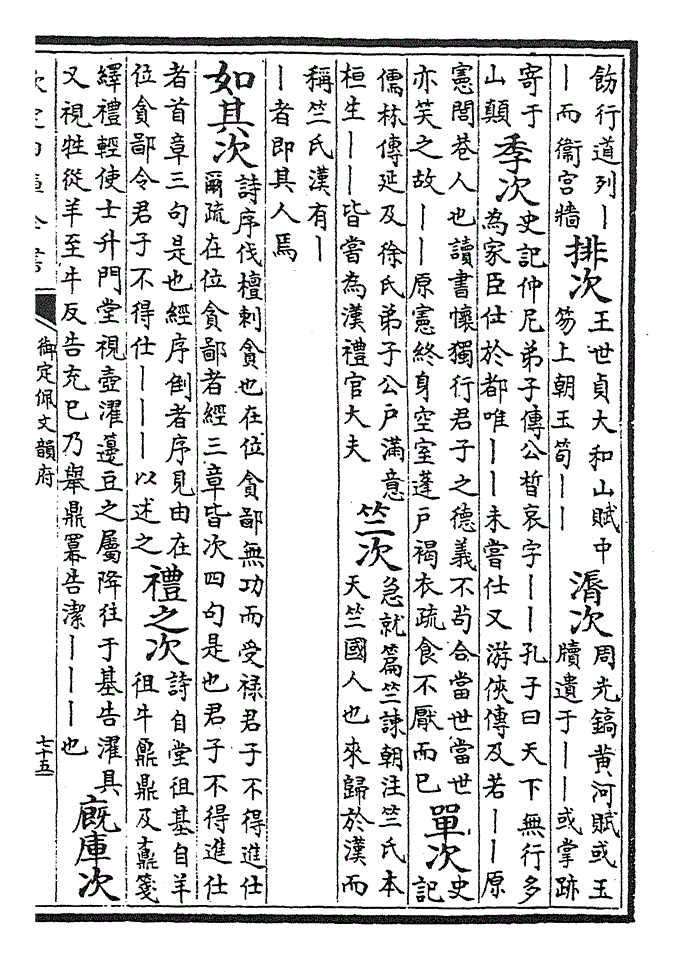 飭行道列丨
丨而衞宫牆
排次
王世貞大和山賦中
笏上朝玉筍丨丨
漘次
周光鎬黄河賦或玉
牘遺于丨丨或掌跡
寄于
山顛
季次
史記仲尼弟子傳公晳哀字丨丨孔子曰天下無行多
為家臣仕於都唯丨丨未嘗仕又游俠傳及若丨丨原
憲閭巷人也讀書懷獨行君子之德義不茍合當世當世
亦笑之故丨丨原憲終身空室蓬戶褐衣疏食不厭而已
單次
史
記
儒林傳延及徐氏弟子公戶滿意
桓生丨丨皆嘗為漢禮官大夫
竺次
急就篇竺諫朝注竺氏本
天竺國人也來歸於漢而
稱竺氏漢有丨
丨者即其人焉
如其次
詩序伐檀刺貪也在位貪鄙無功而受禄君子不得進仕
爾疏在位貪鄙者經三章皆次四句是也君子不得進仕
者首章三句是也經序倒者序見由在
位貪鄙令君子不得仕丨丨丨以述之
禮之次
詩自堂徂基自羊
徂牛鼐鼎及鼒箋
繹禮輕使士升門堂視壺濯籩豆之屬降往于基告濯具
又視牲從羊至牛反告充已乃舉鼎冪告潔丨丨丨也
廐庫次
欽定四庫全書
御定佩文韻府
七十五